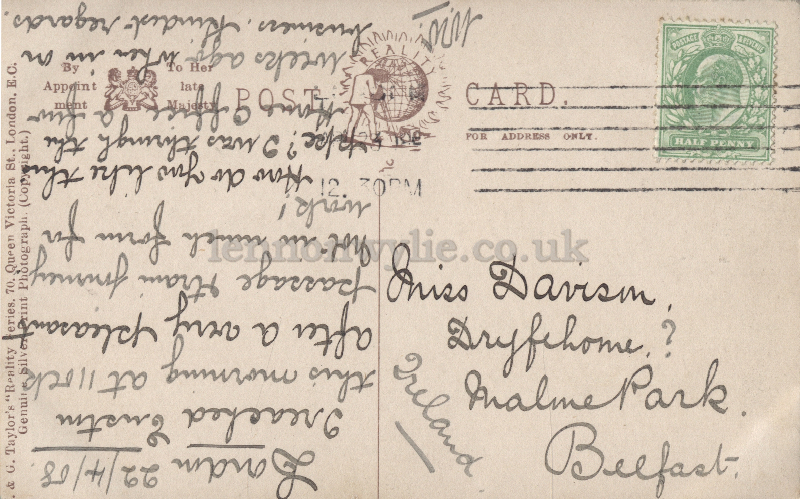 By Appointment
To Her late Majesty
REALITY
POST CARD.
FOR ADDRESS ONLY.
POSTAGE & REVENUE
HALF PENNY
12. 30PM
London 22/4/08
I reached Euston
this morning at 11 o'ck
after a very pleasant
passage & train journey
Not in much form for
work!
How do you like this
I was through the
Home Office a few
weeks ago when in on
business. Kindest regards
Miss Davison,
Dryfehome,?
Malone Park.
Belfast.
Ireland
& G. Taylor's "Reality" Series, 70, Queen Victoria St., London, E.C.
Genuine Silver Print Photograph. (Copyright.)
lennonwylie.co.uk